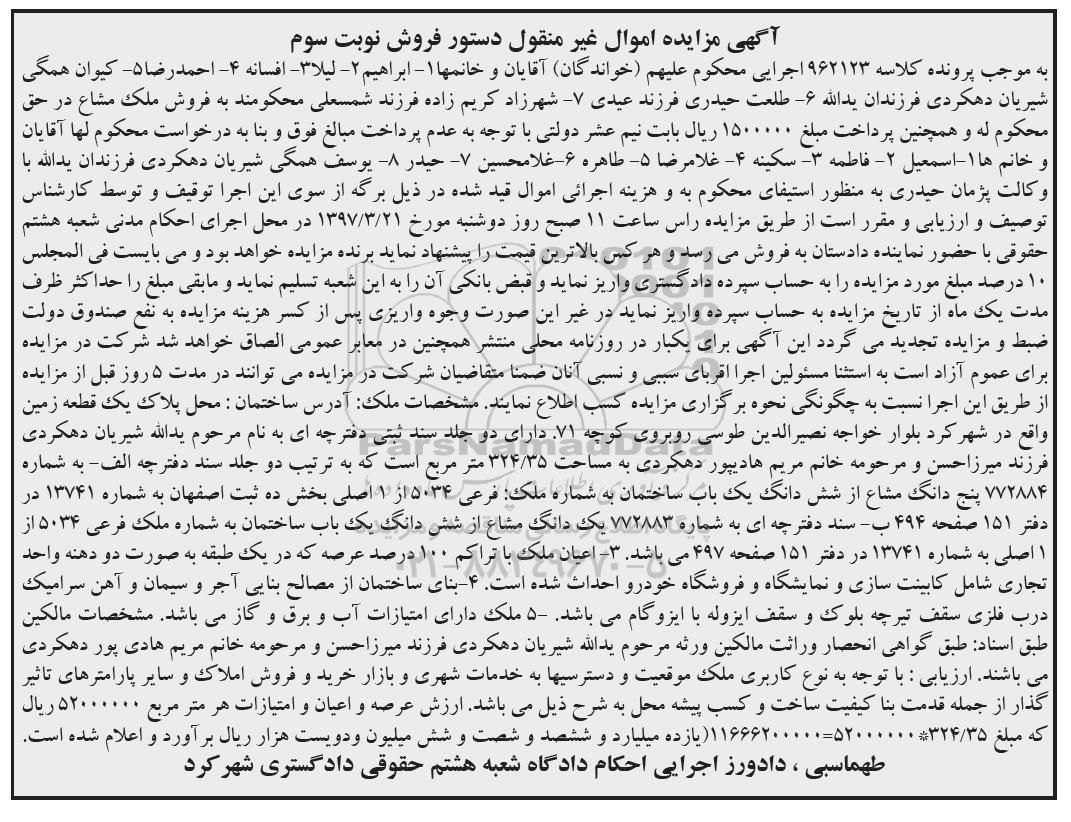 آگهی مزایده اموال غیر منقول دستور فروش نوبت سوم
به موجب پرونده کلاسه ۹۶۲۱۲۳ اجرایی محکوم علیهم (خواندگان) آقایان و خانمها۱- ابراهیم۲- لیلا۳- افسانه ۴- احمدرضا۵- کیوان همگی
شیریان دهکردی فرزندان یدالله ۶- طلعت حیدری فرزند عیدی ۷- شهرزاد کریم زاده فرزند شمسعلی محکومند به فروش ملک مشاع در حق
محکوم له و همچنین پرداخت مبلغ ۱۵۰۰۰۰۰ ریال بابت نیم عشر دولتی با توجه به عدم پرداخت مبالغ فوق و بنا به درخواست محکوم لها آقایان
و خانم ها۱-اسمعیل ۲- فاطمه ۳- سکینه ۴- غلامرضا ۵- طاهره ۶-غلامحسین ۷- حیدر ۸- یوسف همگی شیریان دهکردی فرزندان یدالله با
وکالت پژمان حیدری به منظور استیفای محکوم به و هزینه اجرائی اموال قید شده در ذیل برگه از سوی این اجرا توقیف و توسط کارشناس
توصیف و ارزیابی و مقرر است از طریق مزایده راس ساعت ۱۱ صبح روز دوشنبه مورخ ۱۳۹۷/۳/۲۱ در محل اجرای احکام مدنی شعبه هشتم
حقوقی با حضور نماینده دادستان به فروش می رسد و هر کس بالاترین قیمت را پیشنهاد نماید برنده مزایده خواهد بود و می بایست فی المجلس
۱۰ درصد مبلغ مورد مزایده را به حساب سپرده دادگستری واریز نماید و قبض بانکی آن را به این شعبه تسلیم نماید و مابقی مبلغ را حداکثر ظرف
مدت یک ماه از تاریخ مزایده به حساب سپرده واریز نماید در غیر این صورت وجوه واریزی پس از کسر هزینه مزایده به نفع صندوق دولت
ضبط و مزایده تجدید می گردد این آگهی برای یکبار در روزنامه محلی منتشر همچنین در معابر عمومی الصاق خواهد شد شرکت در مزایده
برای عموم آزاد است به استثنا مسئولین اجرا اقربای سببی و نسبی آنان ضمنا متقاضیان شرکت در مزایده می توانند در مدت ۵ روز قبل از مزایده
از طریق این اجرا نسبت به چگونگی نحوه برگزاری مزایده کسب اطلاع نمایند. مشخصات ملک: آدرس ساختمان : محل پلاک یک قطعه زمین
واقع در شهرکرد بلوار خواجه نصیرالدین طوسی روبروی کوچه ۷۱. دارای دو جلد سند ثبتی دفترچه ای به نام مرحوم یدالله شیریان دهکردی
فرزند میرزاحسن و مرحومه خانم مریم هادیپور دهکردی به مساحت ۳۲۴/۳۵ متر مربع است که به ترتیب دو جلد سند دفترچه الف- به شماره
۷۷۲۸۸۴ پنج دانگ مشاع از شش دانگ یک باب ساختمان به شماره ملک: فرعی ۵۰۳۴ از ۱ اصلی بخش ده ثبت اصفهان به شماره ۱۳۷۴۱ در
دفتر ۱۵۱ صفحه ۴۹۴ ب- سند دفترچه ای به شماره ۷۷۲۸۸۳ یک دانگ مشاع از شش دانگ یک باب ساختمان به شماره ملک فرعی ۵۰۳۴ از
۱ اصلی به شماره ۱۳۷۴۱ در دفتر ۱۵۱ صفحه ۴۹۷ می باشد. ۳- اعیان ملک با تراکم ۱۰۰ درصد عرصه که در یک طبقه به صورت دو دهنه واحد
تجاری شامل کابینت سازی و نمایشگاه و فروشگاه خودرو احداث شده است. ۴-بنای ساختمان از مصالح بنایی آجر و سیمان و آهن سرامیک
درب فلزی سقف تیرچه بلوک و سقف ایزوله با ایزوگام می باشد. -۵ ملک دارای امتیازات آب و برق و گاز می باشد. مشخصات مالکین
طبق اسناد: طبق گواهی انحصار وراثت مالکین ورثه مرحوم یدالله شیریان دهکردی فرزند میرزاحسن و مرحومه خانم مریم هادی پور دهکردی
می باشند. ارزیابی : با توجه به نوع کاربری ملک موقعیت و دسترسیها به خدمات شهری و بازار خرید و فروش املاک و سایر پارامترهای تاثیر
گذار از جمله قدمت بنا کیفیت ساخت و کسب پیشه محل به شرح ذیل می باشد. ارزش عرصه و اعیان و امتیازات هر متر مربع ۵۲۰۰۰۰۰۰ ریال
که مبلغ ۳۲۴/۳۵*۵۲۰۰۰۰۰۰=۱۱۶۶۶۲۰۰۰۰۰(یازده میلیارد و ششصد و شصت و شش میلیون ودویست هزار ریال بر آورد و اعلام شده است.
طهماسبی ، دادورز اجرایی احکام دادگاه شعبه هشتم حقوقی دادگستری شهرکرد
ParsNamadData
پایگاه اطلاع رسانی مناقصه و مزایده
۰۲۱-۸۸۳۴۹۶۷۰-۵